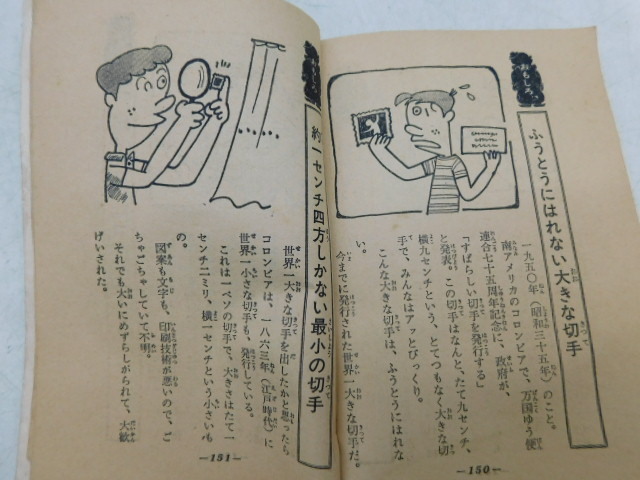 おもしろ
ふうとうにはれない大きな切手
一九五〇年（昭和三十五年）のこと。
南アメリカのコロンビアで、万国ゆう便
連合七十五周年記念に、政府が、
「すばらしい切手を発行する」
と発表。この切手はなんと、たて九センチ、
横九センチという、とてつもなく大きな切
手で、みんなはアッとびっくり。
こんな大きな切手は、ふうとうにはれな
い。
今までに発行された世界一大きな切手だ。
—150—
約一センチ四方しかない最小の切手
世界一大きな切手を出したかと思ったら
コロンビアは、一八六三年（江戸時代）に
世界一小さな切手も、発行している。
これは一ペソの切手で、大きさはたて一
センチ二ミリ、横一センチという小さいも
の。
図案も文字も、印刷技術が悪いので、ご
ちゃごちゃしていて不明。
それでも大いにめずらしがられて、大歓
げいされた。
—151—